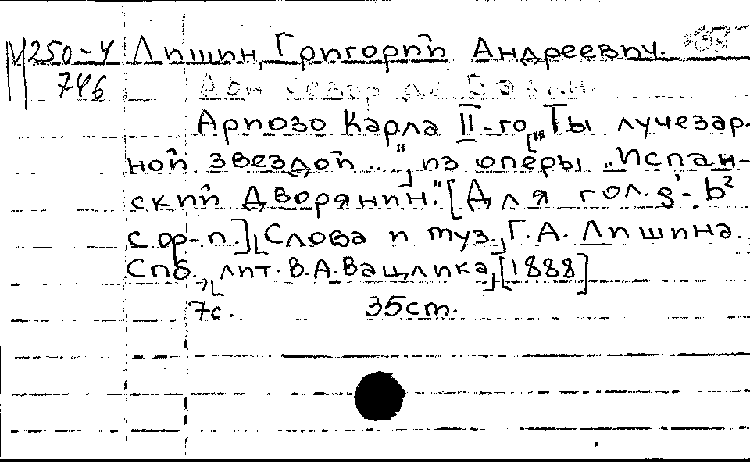 М 250-4 Лишин, Григорий Андреевич.
746 Дон Сезар де Базан.
Ариозо Карла II-го ["Ты лучезар-
ной звездой..."] из оперы „Испан-
ский дворянин." [Для гол. g¹-b²
с ор-п.] [Слова и муз.] Г.А. Лишина.
Спб., [лит. В.А. Вацлика], [1888]
7с. 35см.